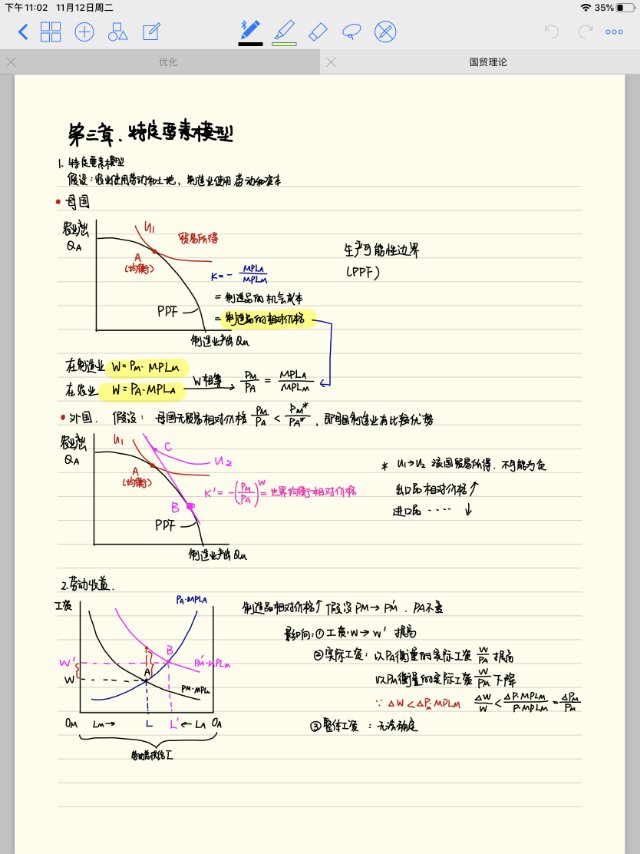 下午11:02 11月12日周二
35%
优化
国贸理论
第三章. 特定要素模型
1. 特定要素模型
假设：农业使用劳动和土地，制造业使用劳动和资本
• 母国
农业产出
QA
U1
贸易所得
A
(均衡)
PPF
制造业产出 QM
K = - MPLA/MPLM
= 制造品的机会成本
= 制造品的相对价格
生产可能性边界
(PPF)
在制造业 W = PM · MPLM
在农业 W = PA · MPLA
W相等 → PM/PA = MPLA/MPLM
• 外国. 假设： 母国无贸易相对价格 PM/PA < PM*/PA*, 即母国制造业有比较优势
农业产出
QA
U1
C
U2
A
(均衡)
B
PPF
制造业产出 QM
K' = -(PM/PA)^W = 世界均衡相对价格
* U1→U2 该国贸易所得. 不可能为负
出口品相对价格↑
进口品 ···· ↓
2. 劳动收益.
工资
PA·MPLA
B
W'
A
W
PM'·MPLM
PM·MPLM
OM LM→ L L' ←LA OA
制造品相对价格↑ 假设 PM→PM'. PA不变
影响: ① 工资: W→W' 提高
② 实际工资: 以PA衡量的实际工资 W/PA 提高
以PM衡量的实际工资 W/PM 下降
∵ ΔW < ΔPM·MPLM ΔW/W < ΔP·MPLM/P·MPLM = ΔPM/PM
③ 整体工资 : 无法确定